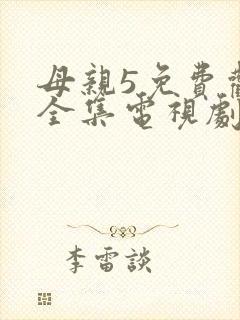 母親5免費觀
全集電視劇
李雷談